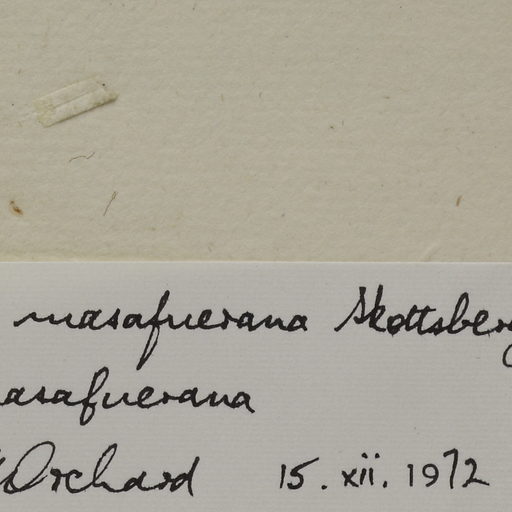 masafuerana Skottsberg
masafuerana
Orchard 15. xii. 1972